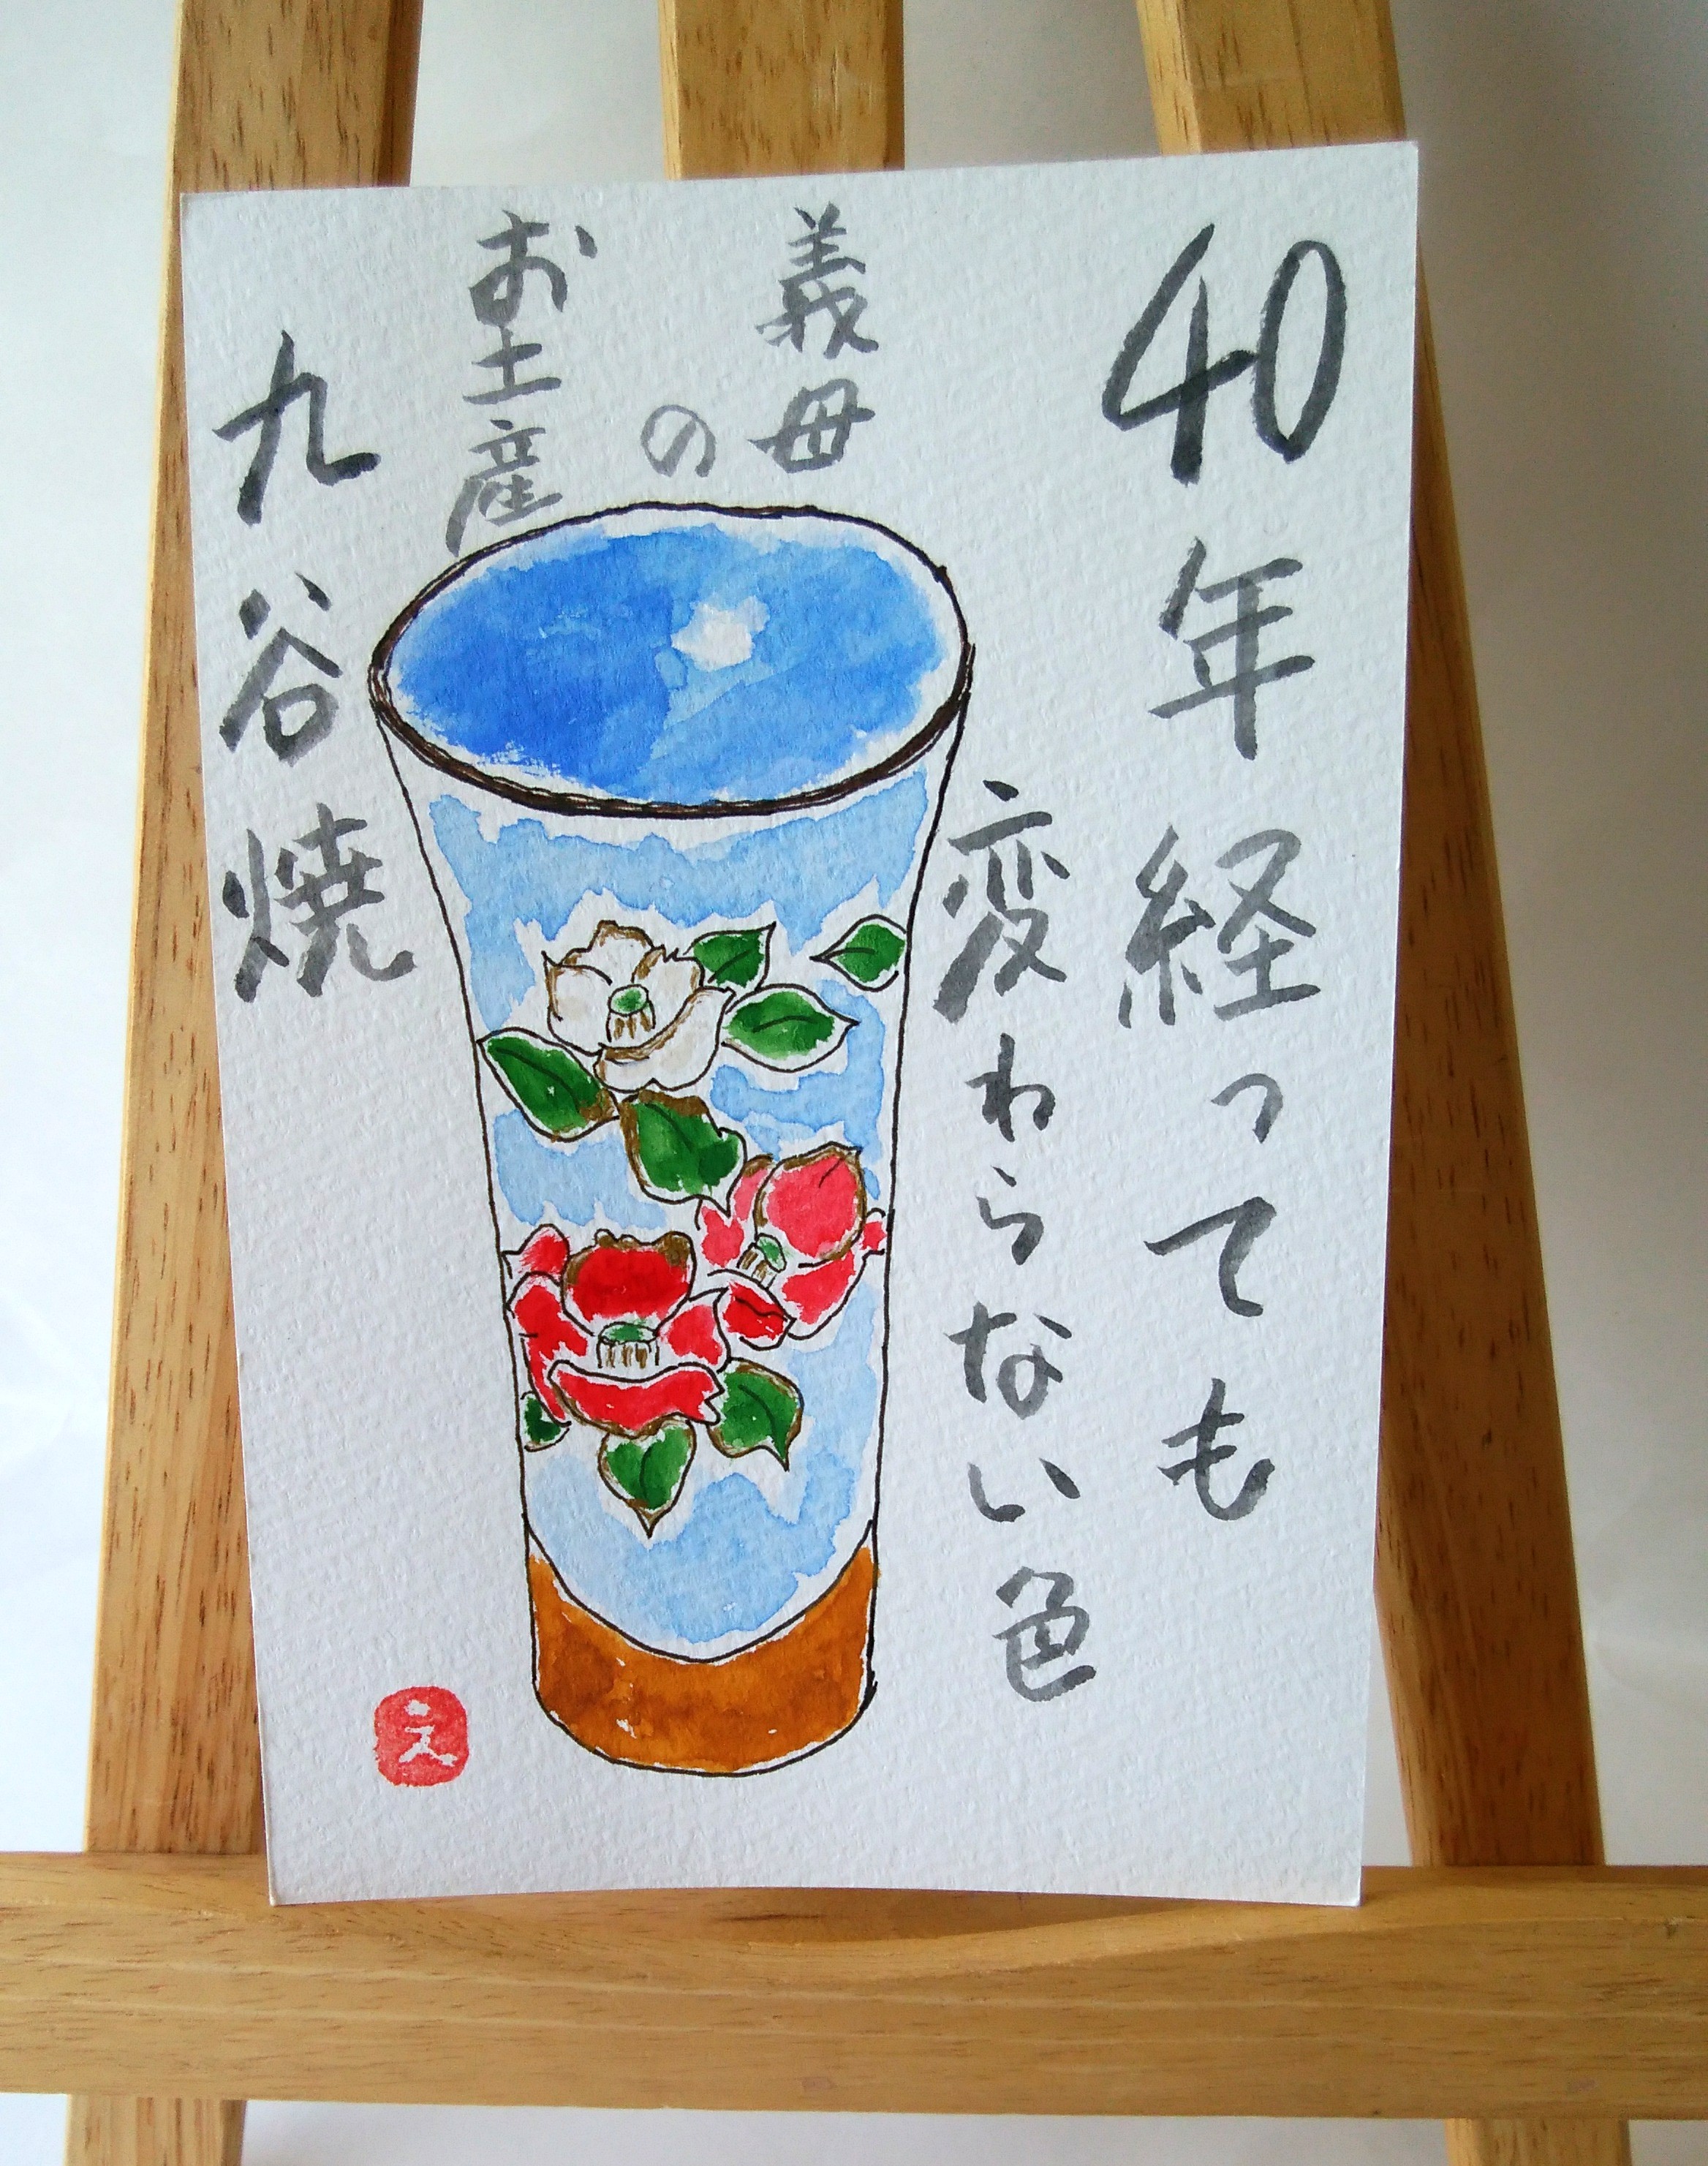 40年経っても
変わらない色
義母
の
お土産
九谷焼
え